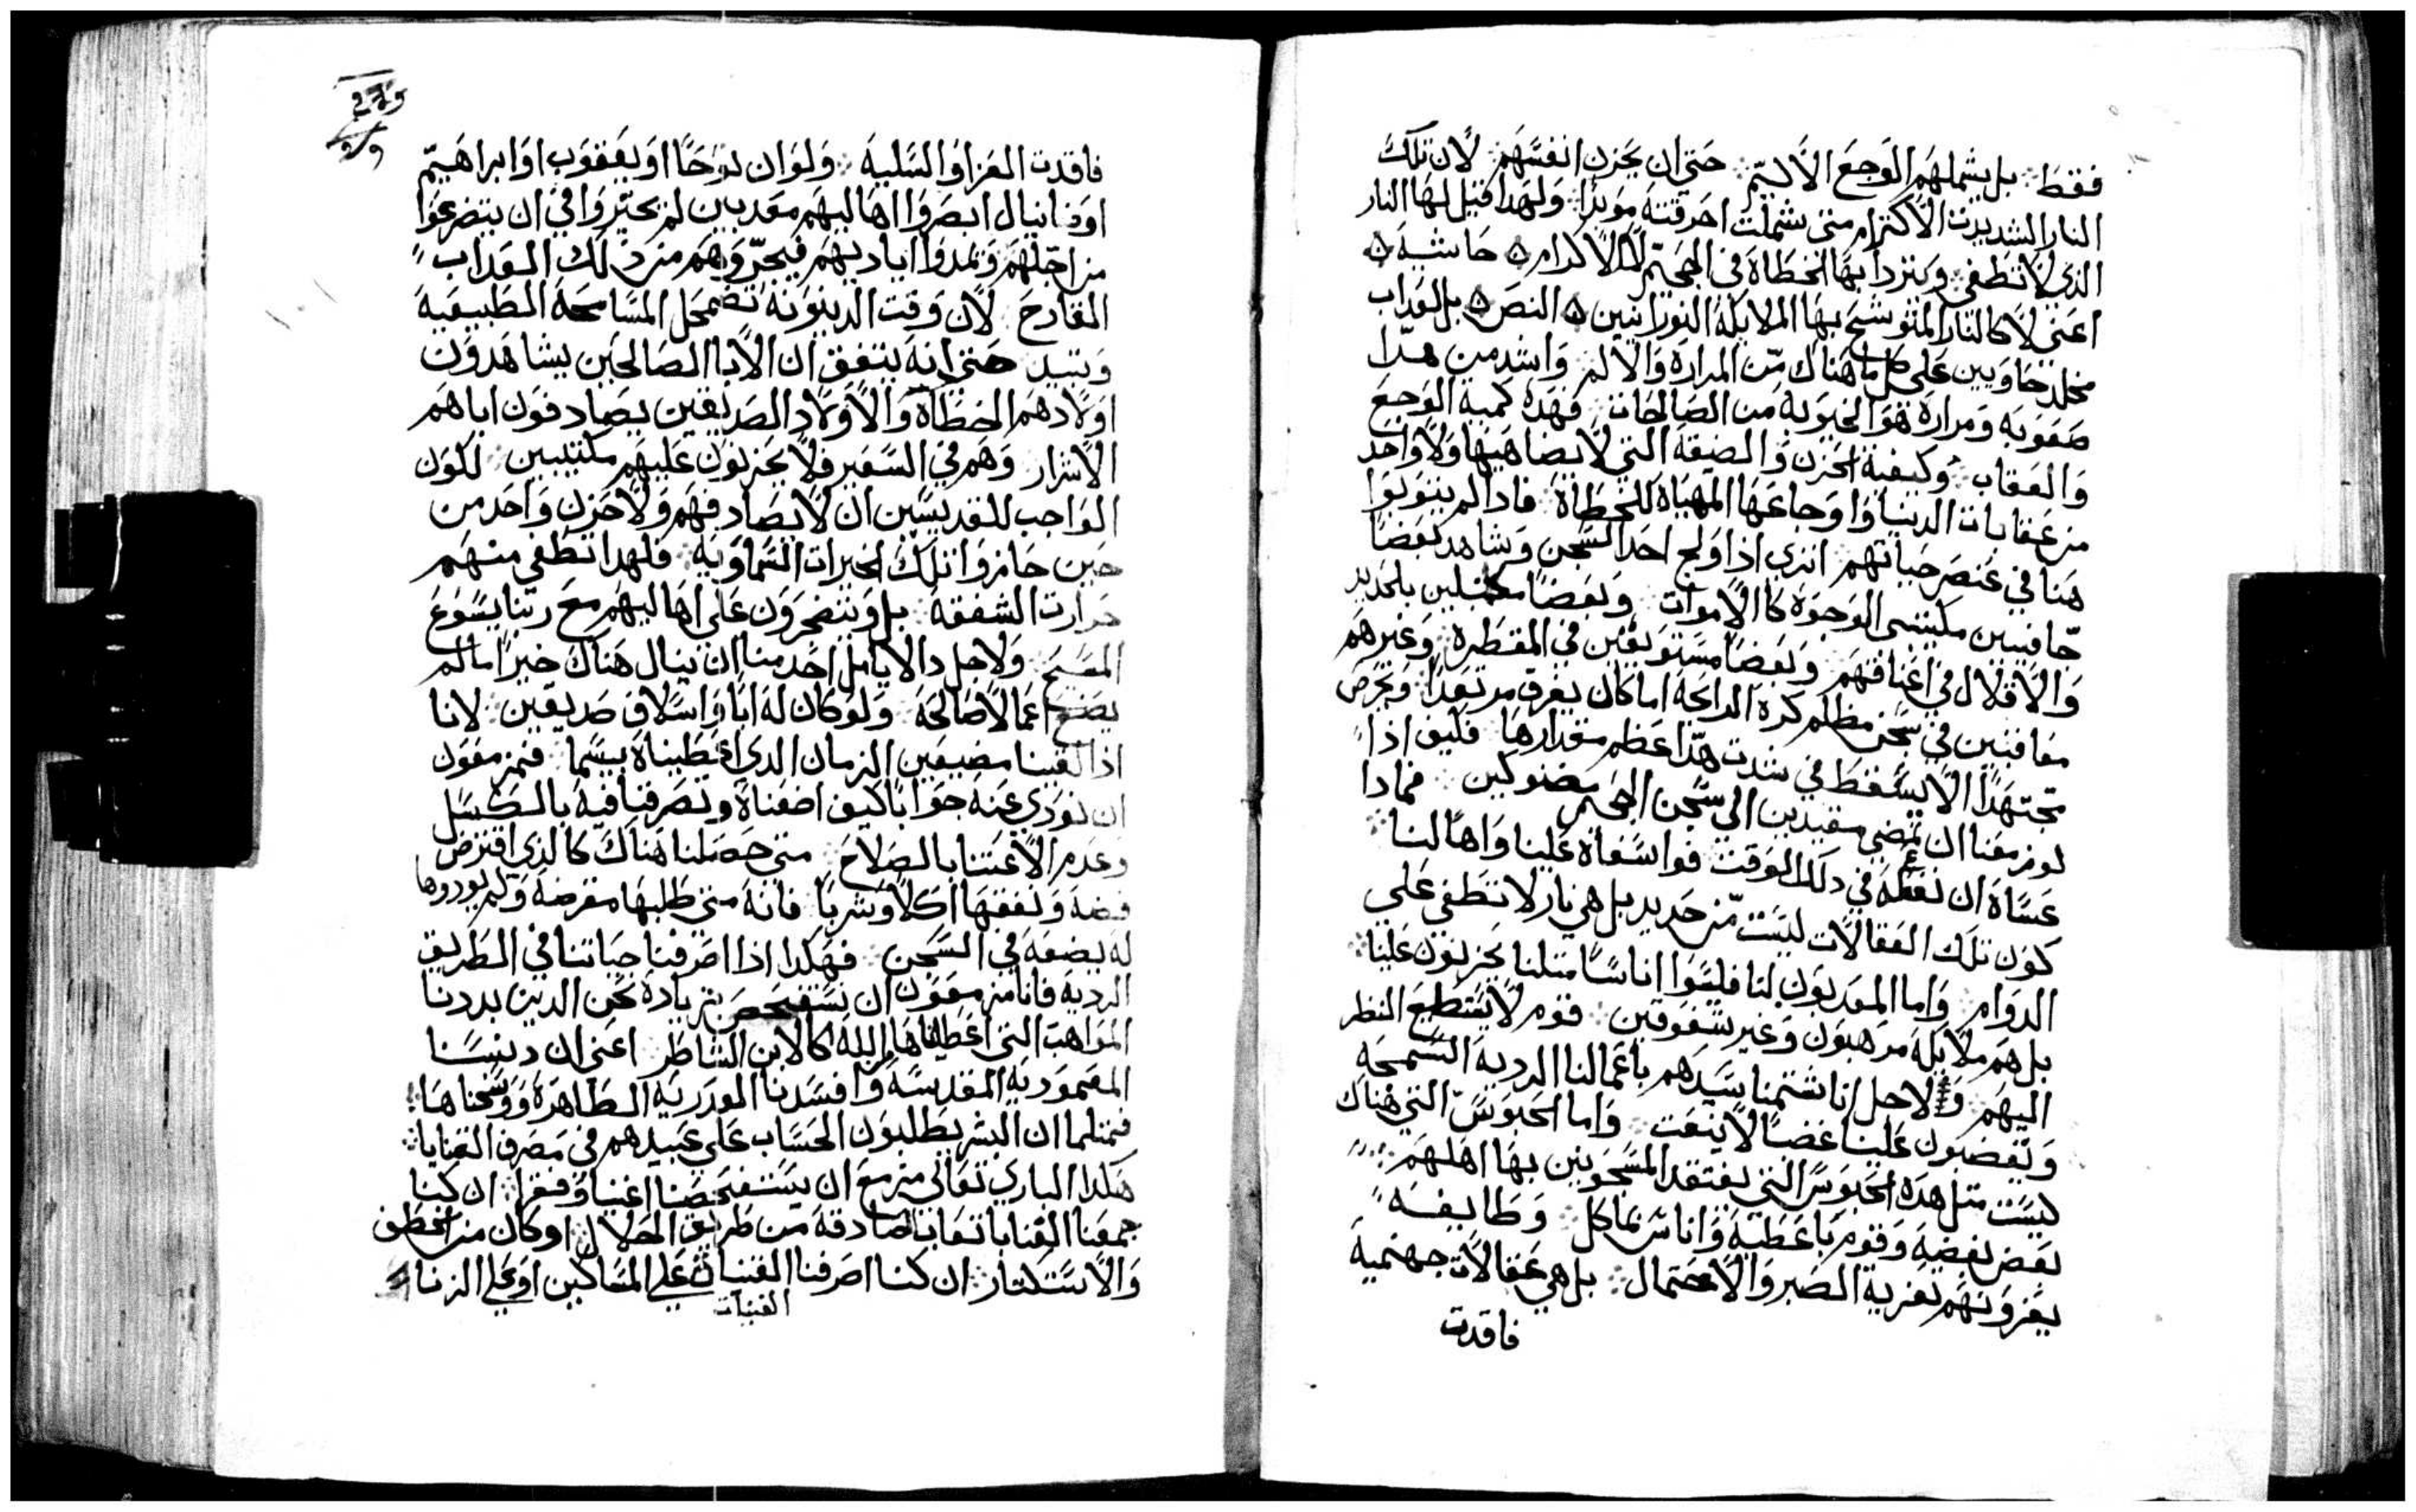 فقط ܀ بل يشملهم الوجع الاليم ܀ حتى ان يحزن انفسهم لان تلك
النار الشديدت الاكترام متى شملت احرقته موبدا ܀ ولهدا قيل لها النار
الدي لا تطفي ܀ ويتردا بها الخطاه في الجحيم لالاكدام ܀ حاشيه ܀
اعني لا كالنار المتوشح بها الملايكه النورانيين ܀ النص ܀ بل العداب
مخلد حاويين على كل ما هناك من المراره والالم ܀ واشد من هدا
صعوبه ومراره هو الخيوبه من الصالحات ܀ فهده كمية الوجع
والعقاب ܀ وكيفية الحزن والضيقه التي لا يضاهيها ولا واحد
من عقابات الدنيا واوجاعها المهياه للخطاه ܀ فادا لم يتوبوا
هنا في عنصر حياتهم ܀ اترى اذا ولج احد السجن وشاهد بعضا
حافيين مكتئسى الوجوه كالاموات ܀ وبعضا مكبلين بالحديد
والاقلال في اعناقهم ܀ وبعضا مستوبقين في المقطره ܀ وغيرهم
معاقبين في سجن مظلم كره الرايحه اما كان يفرق مرتعدا ܀ ويحرص
مجتهدا الا يسقط في شدت هدا عظم مقدارها ܀ فكيف اذا
لو مزمعنا ان نمضي مقيدين الى سجن الجحيم مضنوكين ܀ فمادا
عساه ان نفعله في دلك الوقت ܀ فوا سفاه علينا واها لنا ܀
كون تلك العقالات ليست من حديد بل هي نار لا تطفي على
الدوام ܀ واما المعدبون لنا فليسوا اناسا متلنا يحزنون علينا ܀
بل هم ملايكه مرهبون وغير شفوقين ܀ قوم لا يستطيع النظر
اليهم ܀ ولاجل انا شتمنا سيدهم باعمالنا الرديه السمجه
ويغضبون علينا غضبا لا ينعت ܀ واما الحبوس التي هناك
ليست متل هده الحبوس التي يفتقد المسجونين بها اهلهم ܀
بعض بفضه وقوم باعطيه واناس بماكل ܀ وطايفه
يعزونهم بعزية الصبر والاحتمال ܀ بل هي عقالات جهنميه
فاقدت
فاقدت العزا والسليه ܀ ولو ان نوحا او يعقوب او ابراهيم
او دانيال ابصروا اهاليهم معدبين لم يحتروا في ان يتضرعوا
من اجلهم وتمدوا ايديهم فيحروهم من دلك العداب
القادح ܀ لان وقت الدينونه تضمحل المسامحه الطبيعيه
وتبيد حتى انه يتفق ان الابا الصالحين يشاهدون
اولادهم الخطاه والاولاد الصديقين يصادفون اباهم
الاشرار وهم في السعير فلا يحزنون عليهم مكتيبين ܀ لكون
الواجب للقديسين ان لا يصادفهم ولا حزن واحد من
حين حازوا تلك الخيرات السماويه ܀ فلهدا تطفي منهم
حرارت الشفقه ܀ بل ويتضجرون على اهاليهم مع ربنا يسوع
المسيح ܀ ولاجل دا لا يامل احد منا ان ينال هناك خيرا ما لم
يصنع اعمالا صالحه ܀ ولو كان له ابا واسلاف صديقين ܀ لانا
اذا لقينا مضيعين الزمان الدي اعطيناه بيسما ܀ فمزمعون
ان نودي عنه جوابا كيف اضعناه وتصرفنا فيه بالكسل
وعدم الاعتنا بالصلاح ܀ متى حصلنا هناك كالذي اقترض
فضه ونفقها اكلا وشربا ܀ فانه متى طلبها مقرضه ولم يوردوها
له يضعه في السجن ܀ فهكدا اذا اصرفنا حياتنا في الطريق
الرديه فانا مزمعون ان نستفحص بزياده نحن الدين بددنا
المواهب التي اعطاناها الله كالابن الشاطر ܀ اعني ان دنسنا
المعموديه المقدسه وافسدنا العدريه الطاهره ووسخناها ܀
فمتلما ان البشر يطلبون الحساب على عبيدهم في مصرف القنايا ܀
هكدا الباري تعالى مزمع ان يستفحصنا اغنيا وفقرا ܀ ان كنا
جمعنا القنايا تعاب صادقه من طريق الحلال ܀ او كان من الخطف
والاستكتار ܀ ان كنا اصرفنا القنيات على المساكين او على الزنا
القنيات